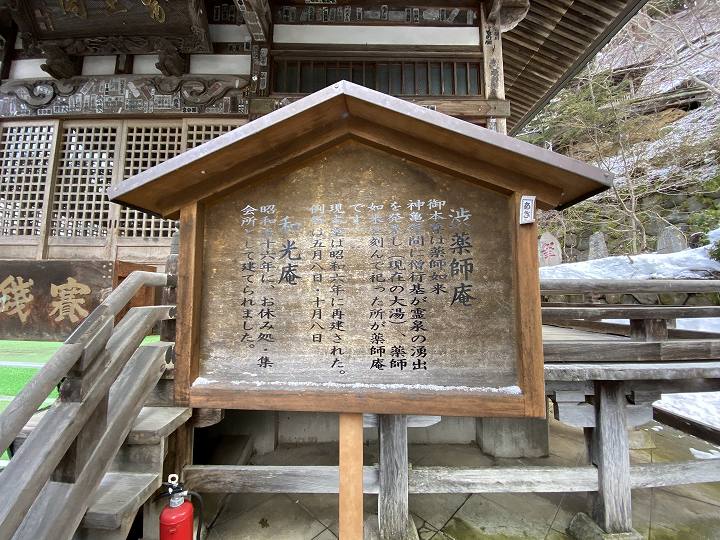 渋薬師庵
御本尊は薬師如来
神亀年間に僧行基が霊泉の湧出
を発きし（現在の大湯）、薬師
如来を刻んで祀った所が薬師庵
です。
現本堂は昭和二年に再建された。
例祭は五月八日、十月八日
和光庵
昭和十六年に、お休み処・集
会所として建てられました。
賽銭